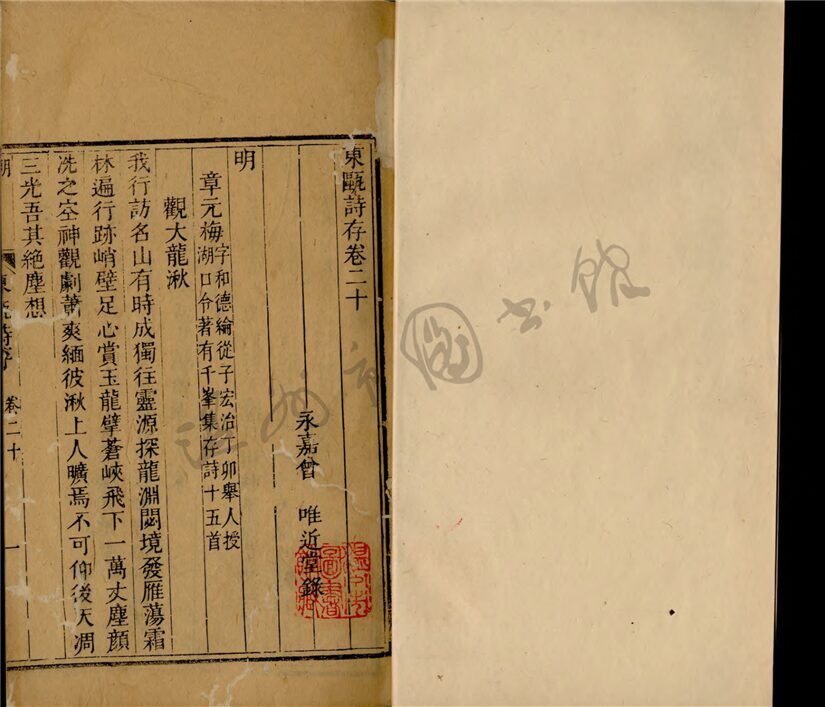 東甌詩存卷二十
永嘉曾 唯近堂錄
明
章元梅字和德綸從子宏治丁卯舉人授
湖口令著有千峯集存詩十五首
觀大龍湫
我行訪名山有時成獨往靈源探龍淵閟境發雁蕩霜
林遍行跡峭壁足心賞玉龍擘蒼峽飛下一萬丈塵顏
洗之空神觀劇蕭爽緬彼湫上人曠焉不可仰後天凋
三光吾其絶塵想
東甌詩存 卷二十 一
溫州市圖書館